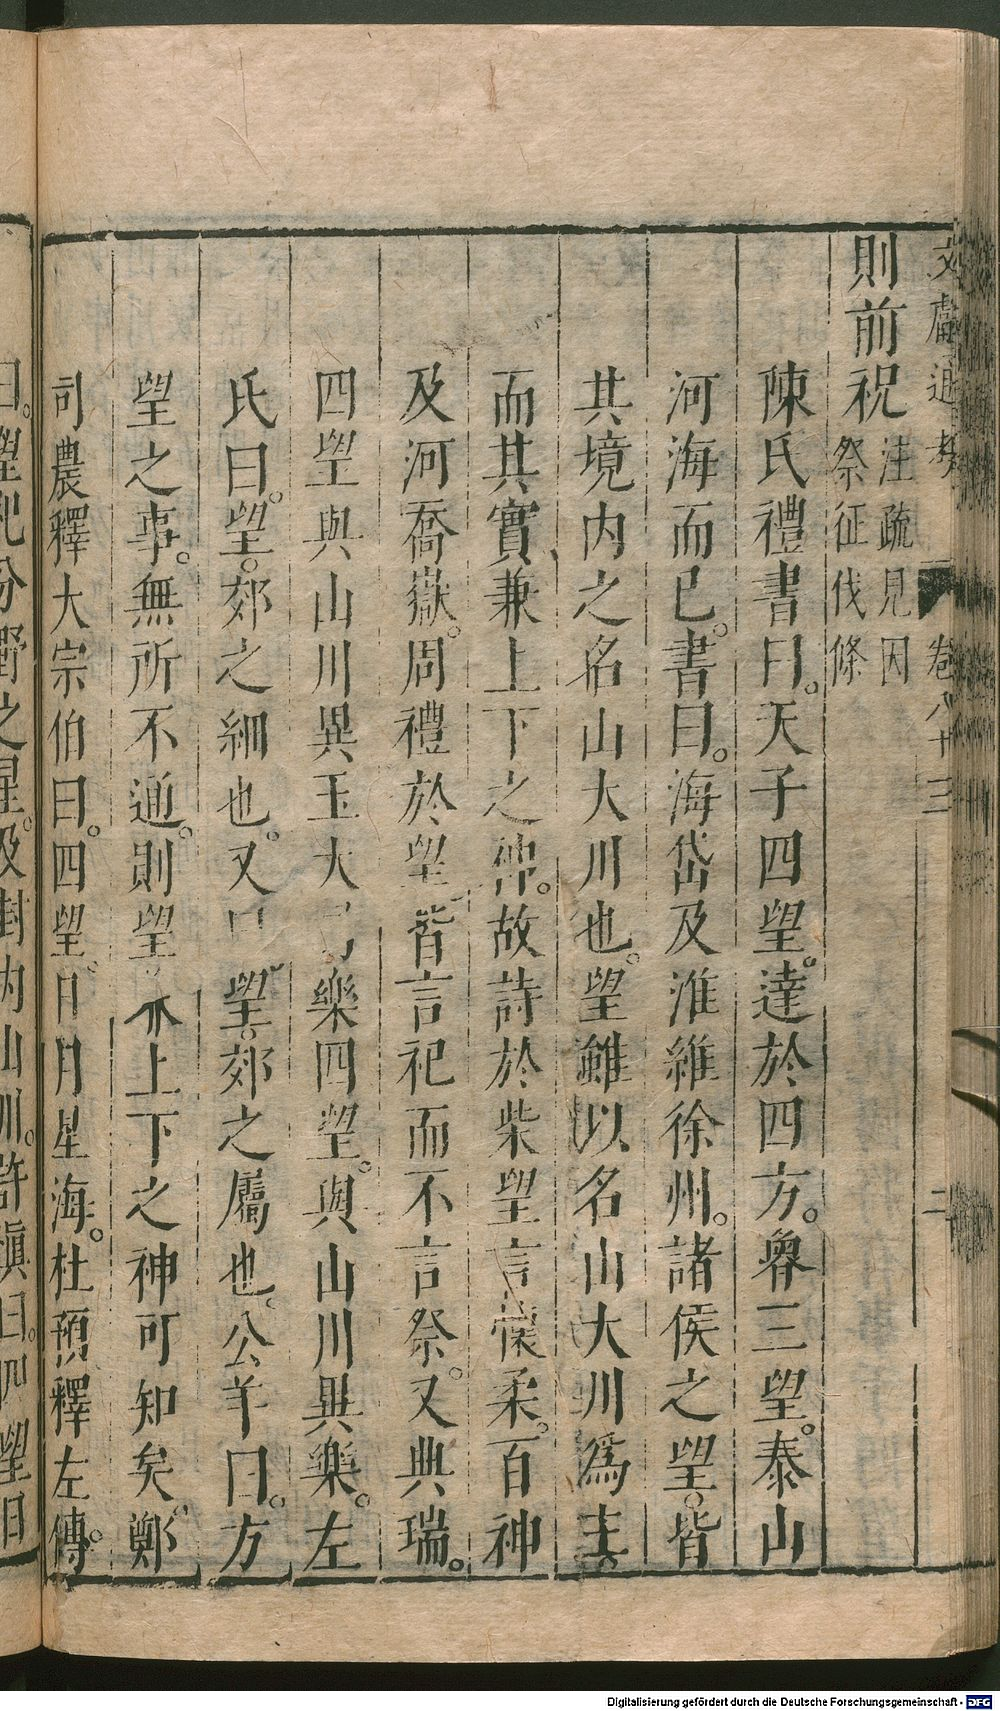 文獻通考 卷八十三 二
則前祝 注疏見因
祭征伐條
陳氏禮書曰。天子四望。達於四方。魯三望。泰山
河海而已。書曰。海岱及淮維徐州。諸侯之望。皆
其境内之名山大川也。望雖以名山大川爲主。
而其實兼上下之神。故詩於柴望言懷柔。百神
及河喬嶽。周禮於望皆言祀而不言祭。又典瑞。
四望與山川異玉大司樂四望。與山川異樂。左
氏曰。望。郊之細也。又曰望。郊之屬也。公羊曰。方
望之事。無所不通。則望 上下之神可知矣。鄭
司農釋大宗伯曰。四望。日月星海。杜預釋左傳。
曰。望祀分野之星。及封内山川。許慎曰。四望日
Digitalisierung gefördert durch die Deutsche Forschungsgemeinschaft - DFG